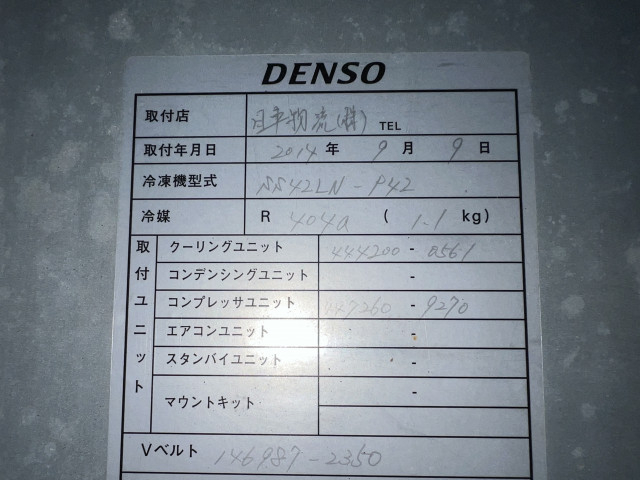 DENSO
取付店 日車物流(株) TEL
取付年月日 2014 年 9 月 9 日
冷凍機型式 SS42LN-P42
冷媒 R 404a ( 1.1 kg)
取付ユニット
クーリングユニット 444200 - 0561
コンデンシングユニット -
コンプレッサユニット 447260 - 9270
エアコンユニット -
スタンバイユニット -
マウントキット -
Vベルト 146987-2350